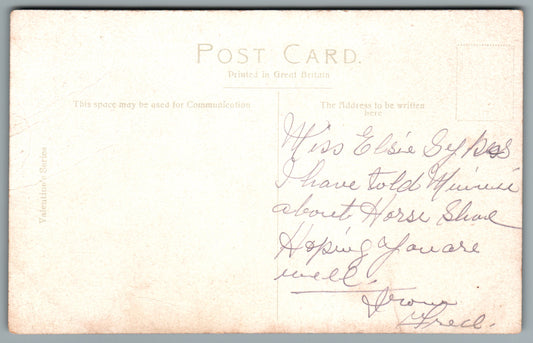 POST CARD.
Printed in Great Britain
This space may be used for Communication
The Address to be written
here
Valentine's Series
Miss Elsie
I have told Minnie
about Horse Shoe
Hoping you are
well.
From
Fred.